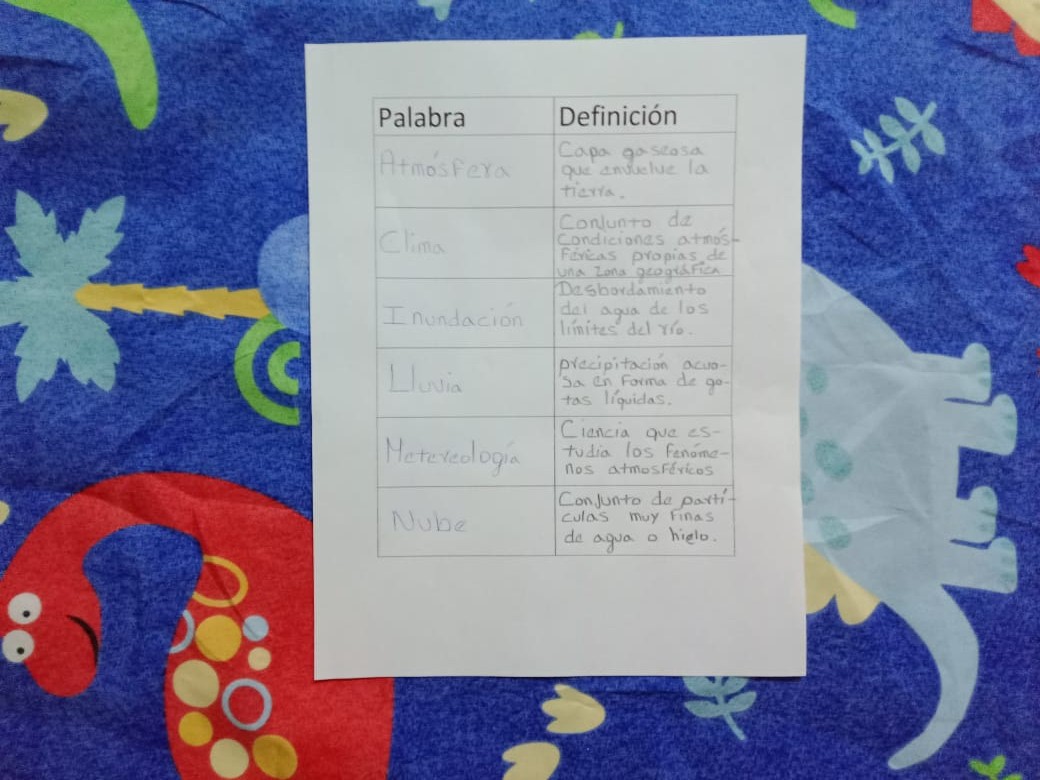 Palabra Definición
Atmósfera
Capa gaseosa
que envuelve la
tierra.
Clima
Conjunto de
Condiciones atmós-
féricas propias de
una zona geográfica
Inundación
Desbordamiento
del agua de los
límites del río.
Lluvia
precipitación acuo-
sa en forma de go-
tas líquidas.
Metereología
Ciencia que es-
tudia los fenóme-
nos atmosféricos
Nube
Conjunto de partí-
culas muy finas
de agua o hielo.